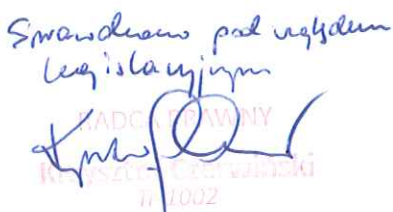 Sprawdzono pod względem
legislacyjnym
RADCA PRAWNY
Krzysztof Czerwiński